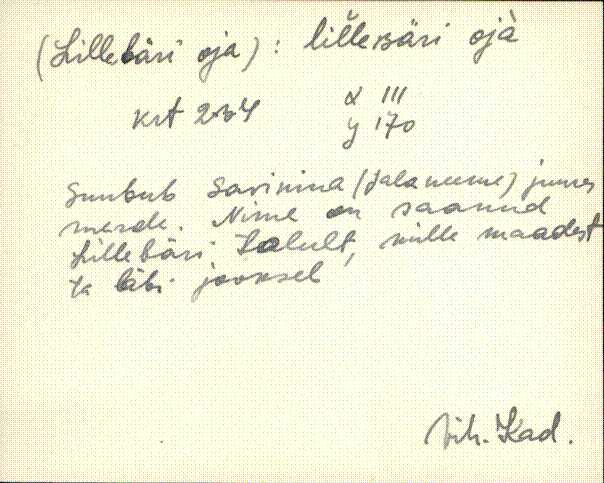 (Lillebäri oja) : lilleʙäri ojà
krt 234 x 111
y 170
Suubub Sarinina (Jalaneeme) juures
merde. Nime on saanud
Lillebäri talult, mille maadest
ta läbi jookseb
Vih. Kad.